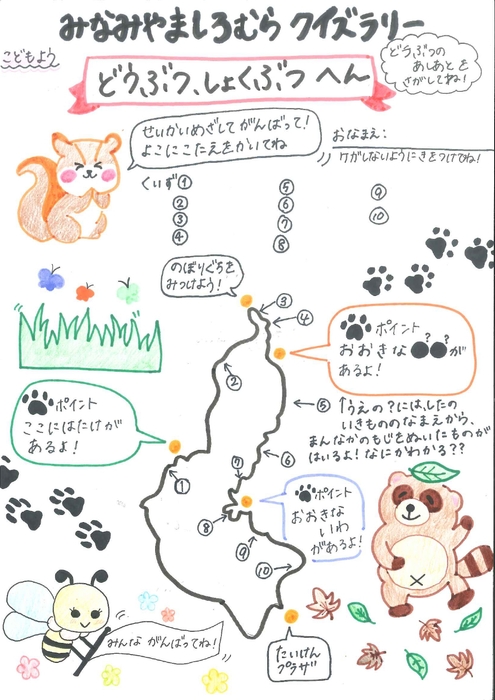 みなみやましろむら クイズラリー
こどもよう
どうぶつ、しょくぶつ へん
どうぶつの
あしあと を
さがしてね!
せいかいめざして がんばって!
よこにこたえをかいてね
おなまえ:
ケガしないようにきをつけてね!
くいず①
②
③
④
⑤
⑥
⑦
⑧
⑨
⑩
のぼりぐちを
みつけよう!
③
④
ポイント
おおきな●?●?が
あるよ!
②
ポイント
ここにはたけが
あるよ!
⑤
↑うえの?には、したの
いきもののなまえから、
まんなかのもじをぬいたものが
はいるよ!なにかわかる??
⑥
⑦
①
ポイント
おおきな
いわ
があるよ!
⑧
⑨
⑩
みんな がんばってね!
たいけん
プラザ